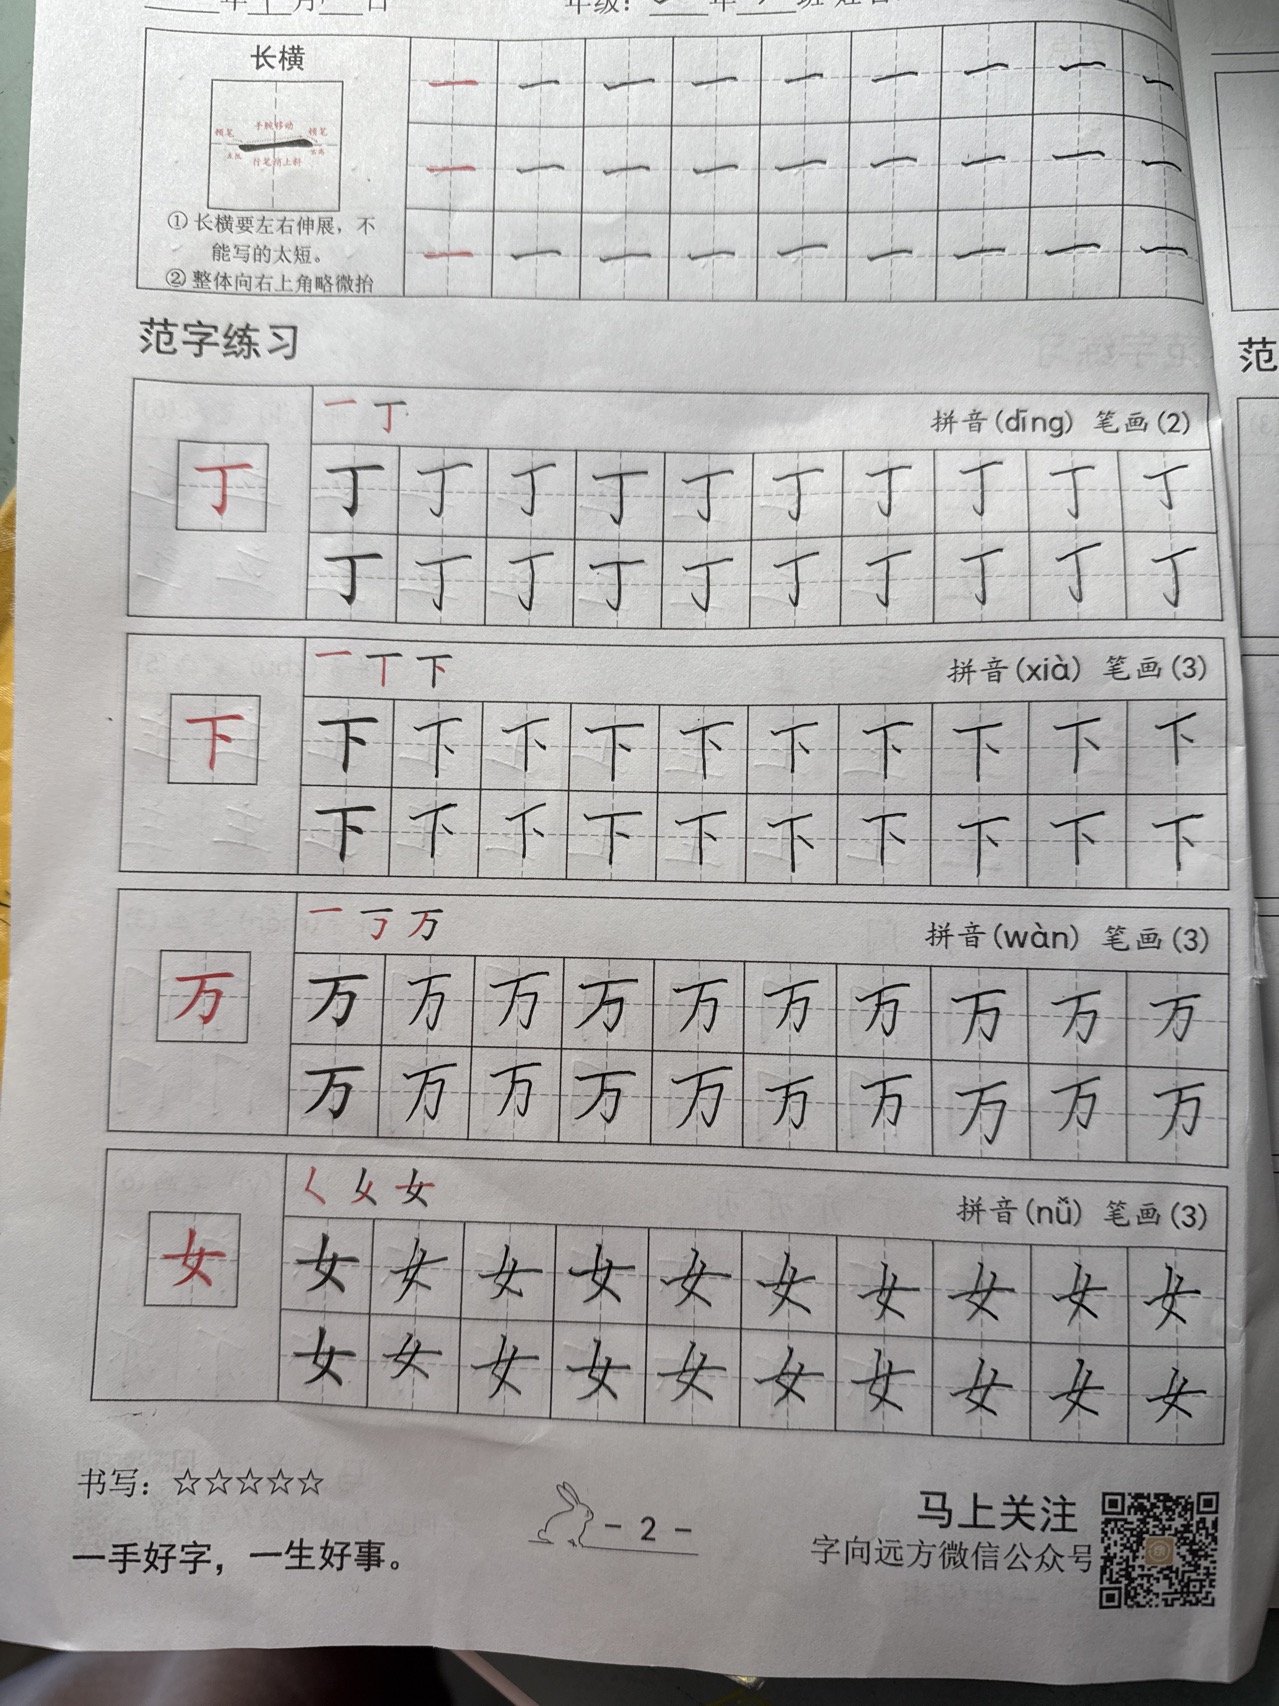 年 月 日 年级： 年 班
长横
一 一 一 一 一 一 一 一 一
顿笔 手腕移动 顿笔
行笔稍上斜
一 一 一 一 一 一 一 一 一
① 长横要左右伸展，不
能写的太短。
一 一 一 一 一 一 一 一 一
② 整体向右上角略微抬
范字练习
范
一 丁
拼音(dīng) 笔画(2)
丁
丁 丁 丁 丁 丁 丁 丁 丁 丁 丁
丁 丁 丁 丁 丁 丁 丁 丁 丁 丁
一 丅 下
拼音(xià) 笔画(3)
下
下 下 下 下 下 下 下 下 下 下
下 下 下 下 下 下 下 下 下 下
一 丂 万
拼音(wàn) 笔画(3)
万
万 万 万 万 万 万 万 万 万 万
万 万 万 万 万 万 万 万 万 万
𡿨 乂 女
拼音(nǚ) 笔画(3)
女
女 女 女 女 女 女 女 女 女 女
女 女 女 女 女 女 女 女 女 女
书写：☆☆☆☆☆
一手好字，一生好事。
- 2 -
马上关注
字向远方微信公众号